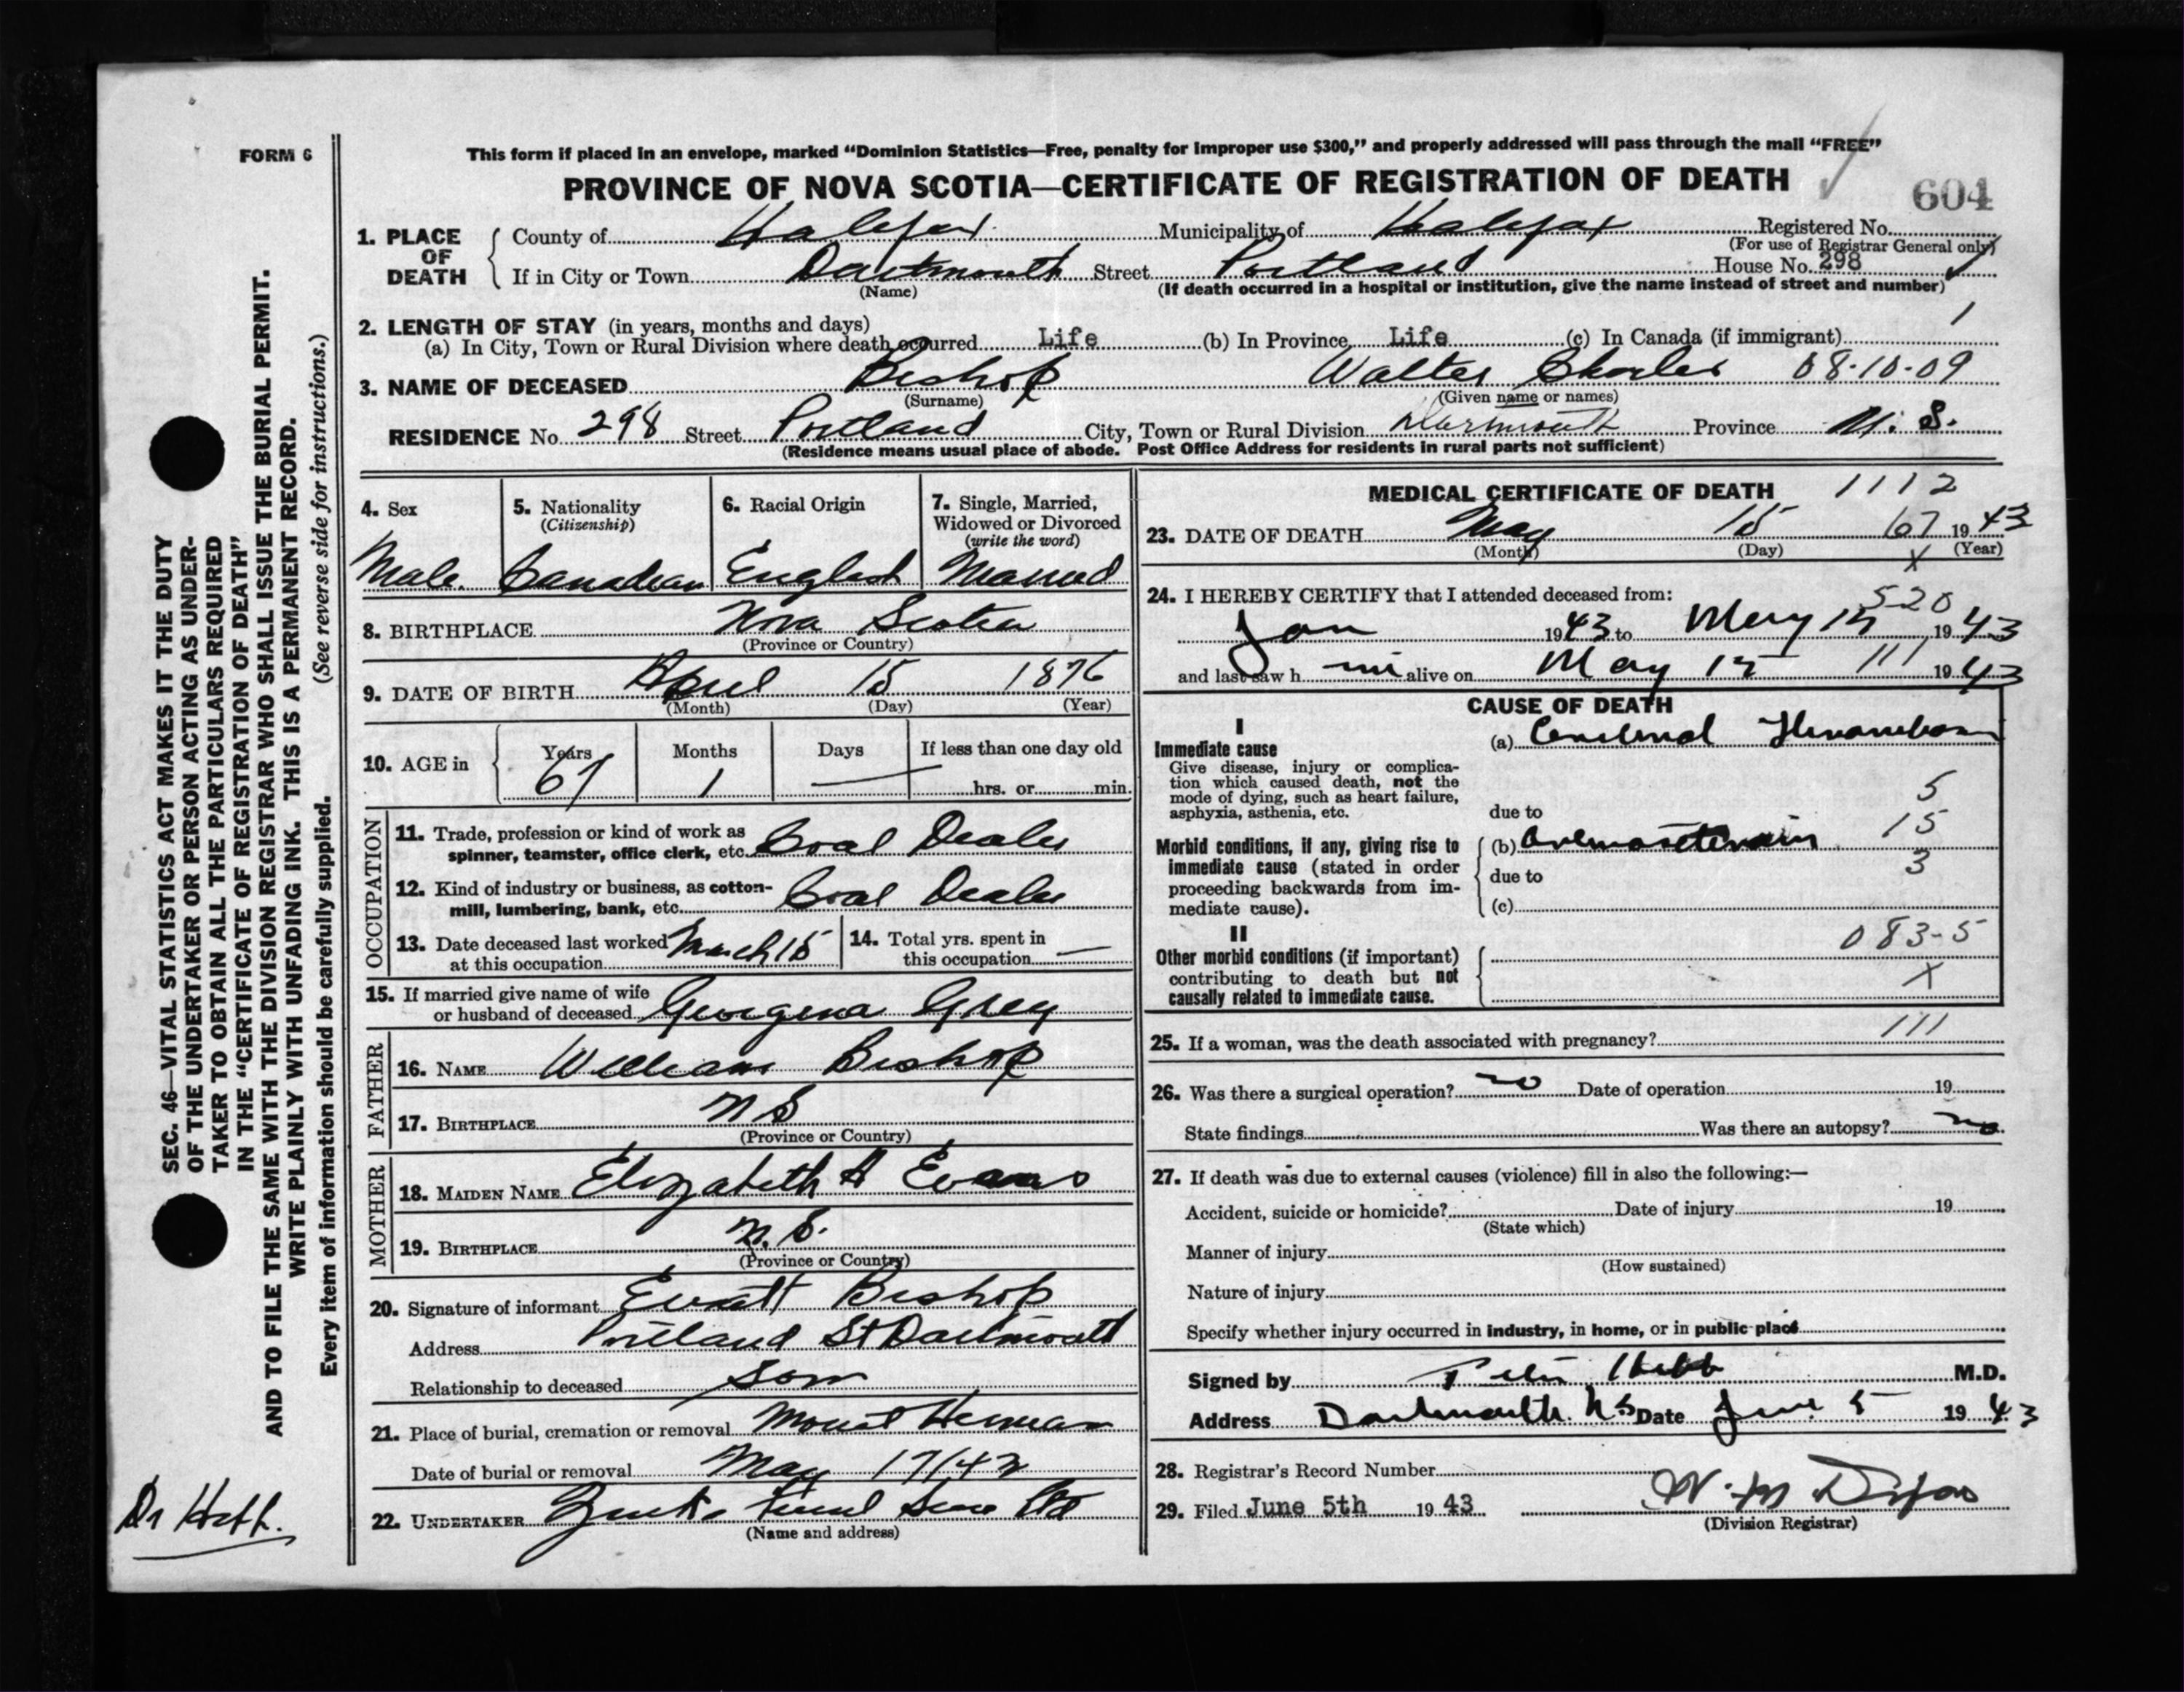 FORM 6
This form if placed in an envelope, marked “Dominion Statistics—Free, penalty for improper use $300,” and properly addressed will pass through the mail “FREE”
PROVINCE OF NOVA SCOTIA—CERTIFICATE OF REGISTRATION OF DEATH
604
1. PLACE OF DEATH
County of Halifax Municipality of Halifax Registered No.
(For use of Registrar General only)
If in City or Town Dartmouth Street Portland House No. 298
(Name) (If death occurred in a hospital or institution, give the name instead of street and number)
2. LENGTH OF STAY (in years, months and days)
(a) In City, Town or Rural Division where death occurred Life (b) In Province Life (c) In Canada (if immigrant)
3. NAME OF DECEASED Bishop Walter Charles 08-10-09
(Surname) (Given name or names)
RESIDENCE No. 298 Street Portland City, Town or Rural Division Dartmouth Province N. S.
(Residence means usual place of abode. Post Office Address for residents in rural parts not sufficient)
4. Sex
Male
5. Nationality
(Citizenship)
Canadian
6. Racial Origin
English
7. Single, Married,
Widowed or Divorced
(write the word)
Married
8. BIRTHPLACE Nova Scotia
(Province or Country)
9. DATE OF BIRTH April 15 1876
(Month) (Day) (Year)
10. AGE in Years Months Days If less than one day old
67 1 — hrs. or min.
OCCUPATION
11. Trade, profession or kind of work as
spinner, teamster, office clerk, etc. Coal Dealer
12. Kind of industry or business, as cotton-
mill, lumbering, bank, etc. Coal Dealer
13. Date deceased last worked March 15
at this occupation
14. Total yrs. spent in
this occupation —
15. If married give name of wife
or husband of deceased Georgena Grey
FATHER
16. NAME William Bishop
17. BIRTHPLACE N S
(Province or Country)
MOTHER
18. MAIDEN NAME Elizabeth A Evans
19. BIRTHPLACE N. S.
(Province or Country)
20. Signature of informant Bishop
Address Portland St Dartmouth
Relationship to deceased Son
21. Place of burial, cremation or removal Mount Herman
Date of burial or removal May 17/43
22. UNDERTAKER
(Name and address)
MEDICAL CERTIFICATE OF DEATH 1112
23. DATE OF DEATH May 15 67 19 43
(Month) (Day) X (Year)
24. I HEREBY CERTIFY that I attended deceased from:
520
Jan 1943 to May 15, 19 43
and last saw h im alive on May 15 111 19 43
CAUSE OF DEATH
I
Immediate cause
Give disease, injury or complica-
tion which caused death, not the
mode of dying, such as heart failure,
asphyxia, asthenia, etc.
(a) Cerebral
5
due to
Morbid conditions, if any, giving rise to
immediate cause (stated in order
proceeding backwards from im-
mediate cause).
15
(b)
3
due to
(c)
II
Other morbid conditions (if important)
contributing to death but not
causally related to immediate cause.
083-5
X
25. If a woman, was the death associated with pregnancy? 111
26. Was there a surgical operation? no Date of operation 19
State findings Was there an autopsy? no
27. If death was due to external causes (violence) fill in also the following:—
Accident, suicide or homicide? Date of injury 19
(State which)
Manner of injury
(How sustained)
Nature of injury
Specify whether injury occurred in industry, in home, or in public place
Signed by Hebb M.D.
Address Dartmouth N S Date June 5 19 43
28. Registrar's Record Number
29. Filed June 5th 19 43
(Division Registrar)
SEC. 46—VITAL STATISTICS ACT MAKES IT THE DUTY
OF THE UNDERTAKER OR PERSON ACTING AS UNDER-
TAKER TO OBTAIN ALL THE PARTICULARS REQUIRED
IN THE “CERTIFICATE OF REGISTRATION OF DEATH”
AND TO FILE THE SAME WITH THE DIVISION REGISTRAR WHO SHALL ISSUE THE BURIAL PERMIT.
WRITE PLAINLY WITH UNFADING INK. THIS IS A PERMANENT RECORD.
Every item of information should be carefully supplied. (See reverse side for instructions.)
Dr Hebb.